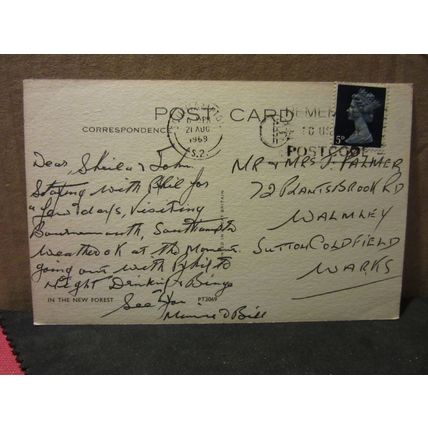 POST CARD
CORRESPONDENCE
21 AUG
1969
REMEMBER
POSTCODE
5D
Dear Sheila & John
Staying with Phil for
a few days, visiting
Bournemouth, Southampton
weather OK at the moment
going out with Phil to
night Drinking & Bingo
See You
Bill
MR & MRS J. PALMER
72 PLANTSBROOK RD
WALMLEY
SUTTON COLDFIELD
WARKS
IN THE NEW FOREST
PT3069